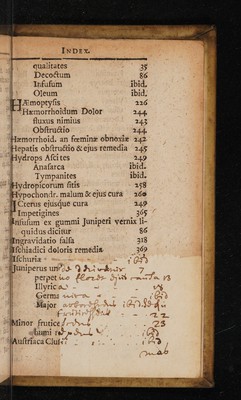 INDEX.
qualitates 35
Decoctum 86
Infusum ibid.
Oleum ibid.
HÆmoptysis 226
Hæmorrhoidum Dolor 244
fluxus nimius 243
Obstructio 244
Hæmorrhoid. an fœminæ obnoxiæ 242
Hepatis obstructio & ejus remedia 245
Hydrops Ascites 249
Anasarca ibid.
Tympanites ibid.
Hydropicorum sitis 258
Hypochondr. malum & ejus cura 260
ICterus ejusque cura 249
Impetigines 365
Infusum ex gummi Juniperi vernix li-
quidus dicitur 86
Ingravidatio falsa 318
Ischiadici doloris remedia 369
Ischuria ibid
Juniperus
perpetuo flores ejus 13
Illyrica
Germa
Major
22
Minor frutico 23
humi
Austriaca Clusii